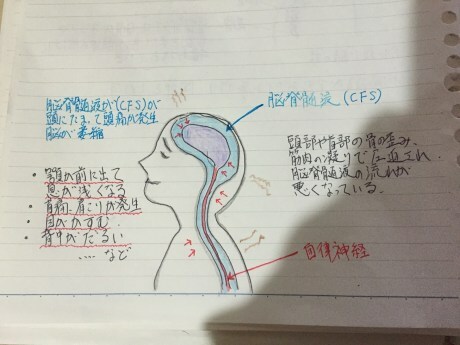 脳脊髄液が(CFS)が
頭にたまって頭痛が発生
脳が萎縮
脳脊髄液 (CFS)
頭部や首部の骨の歪み、
筋肉の凝りで圧迫され、
脳脊髄液の流れが
悪くなっている。
・顎が前に出て
息が浅くなる
・首痛、肩こりが発生
・目がかすむ
・背中がだるい
.... など
自律神経